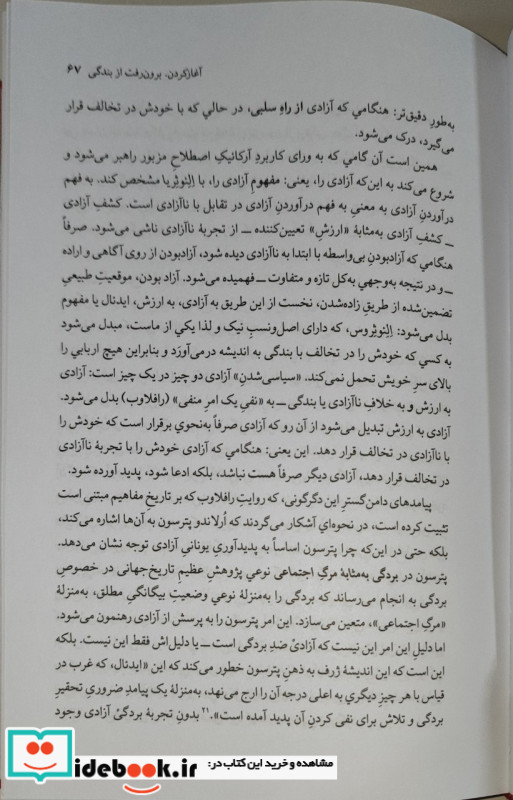 آغازکردن. برون‌رفت از بندگی ۶۷
به‌طورِ دقیق‌تر: هنگامي که آزادی از راهِ سلبی، در حالي که با خودش در تخالف قرار
می‌گیرد، درک می‌شود.
همین است آن گامي که به ورای کاربردِ آرکائیکِ اصطلاحِ مزبور راهبر می‌شود و
شروع می‌کند به این‌که آزادی را، یعنی: مفهومِ آزادی را، با اِلئوثِریا مشخص کند. به فهم
درآوردنِ آزادی به معنیِ به فهم درآوردنِ آزادی در تقابل با ناآزادی است. کشفِ آزادی
ــ کشفِ آزادی به‌مثابهٔ «ارزشِ» تعیین‌کننده ــ از تجربهٔ ناآزادی ناشی می‌شود. صرفاً
هنگامي که آزادبودنِ بی‌واسطه با ابتدا به ناآزادی دیده شود، آزادبودن از رویِ آگاهی و اراده
ــ و در نتیجه به‌وجهي به‌کل تازه و متفاوت ــ فهمیده می‌شود. آزاد بودن، موقعیتِ طبیعیِ
تضمین‌شده از طریقِ زاده‌شدن، نخست از این طریق به آزادی، به ارزش، ایدئال یا مفهوم
بدل می‌شود: اِلئوثِروس، که دارای اصل‌ونسبِ نیک و لذا یکي از ماست، مبدل می‌شود
به کسي که خودش را در تخالف با بندگی به اندیشه درمی‌آورَد و بنابراین هیچ اربابي را
بالای سرِ خویش تحمل نمی‌کند. «سیاسی‌شدنِ» آزادی دو چیز در یک چیز است: آزادی
به ارزش و به خلافِ ناآزادی یا بندگی ــ به «نفیِ یک امرِ منفی» (رافلاوب) بدل می‌شود.
آزادی به ارزش تبدیل می‌شود از آن رو که آزادی صرفاً به‌نحوي برقرار است که خودش را
با ناآزادی در تخالف قرار دهد. این یعنی: هنگامي که آزادی خودش را با تجربهٔ ناآزادی
در تخالف قرار دهد، آزادی دیگر صرفاً هست نباشد، بلکه ادعا شود، پدید آورده شود.
پیامدهای دامن‌گسترِ این دگرگونی، که روایتِ رافلاوب که بر تاریخِ مفاهیم مبتنی است
تثبیت کرده است، در نحوه‌اي آشکار می‌گردند که اُرلاندو پترسون به آن‌ها اشاره می‌کند،
بلکه حتی در این‌که چرا پترسون اساساً به پدیدآوریِ یونانیِ آزادی توجه نشان می‌دهد.
پترسون در بردگی به‌مثابهٔ مرگِ اجتماعی نوعي پژوهشِ عظیمِ تاریخ‌جهانی در خصوصِ
بردگی به انجام می‌رساند که بردگی را به‌منزلهٔ نوعي وضعیتِ بیگانگیِ مطلق، به‌منزلهٔ
«مرگِ اجتماعی»، متعین می‌سازد. این امر پترسون را به پرسش از آزادی رهنمون می‌شود.
اما دلیلِ این امر این نیست که آزادیْ ضدِ بردگی است ــ یا دلیل‌اش فقط این نیست. بلکه
این است که این اندیشهٔ ژرف به ذهنِ پترسون خطور می‌کند که این «ایدئال، که غرب در
قیاس با هر چیزِ دیگري به اعلی درجه آن را ارج می‌نهد، به‌منزلهٔ یک پیامدِ ضروریِ تحقیرِ
بردگی و تلاش برای نفی کردنِ آن پدید آمده است».۲۱ بدونِ تجربهٔ بردگیْ آزادی وجود
idebook.ir
مشاهده و خرید این کتاب در: